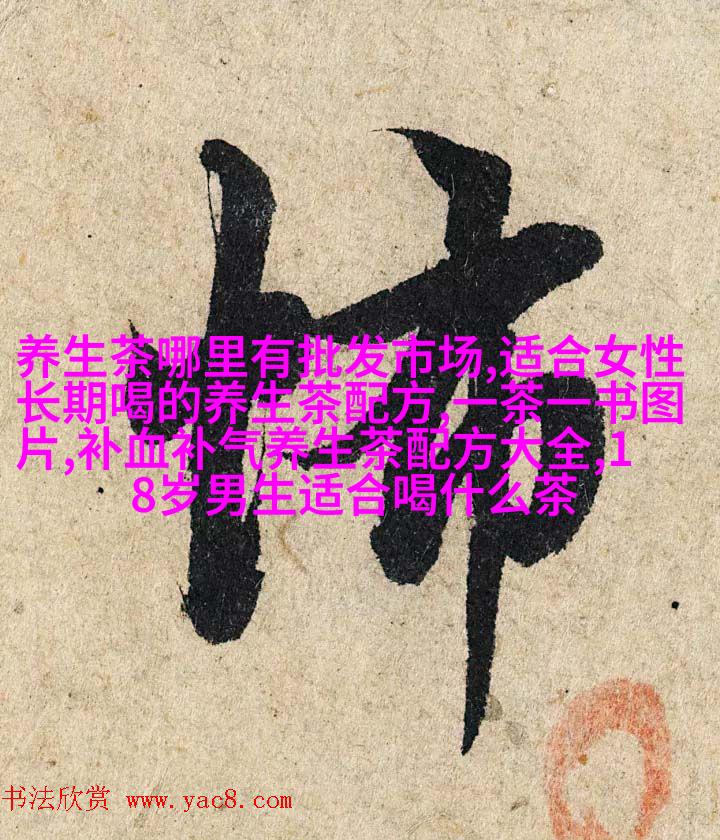 养生茶哪里有批发市场,适合女性
长期喝的养生茶配方,一茶一书图
片,补血补气养生茶配方大全,1
8岁男生适合喝什么茶
书法欣赏 www.yac8.com